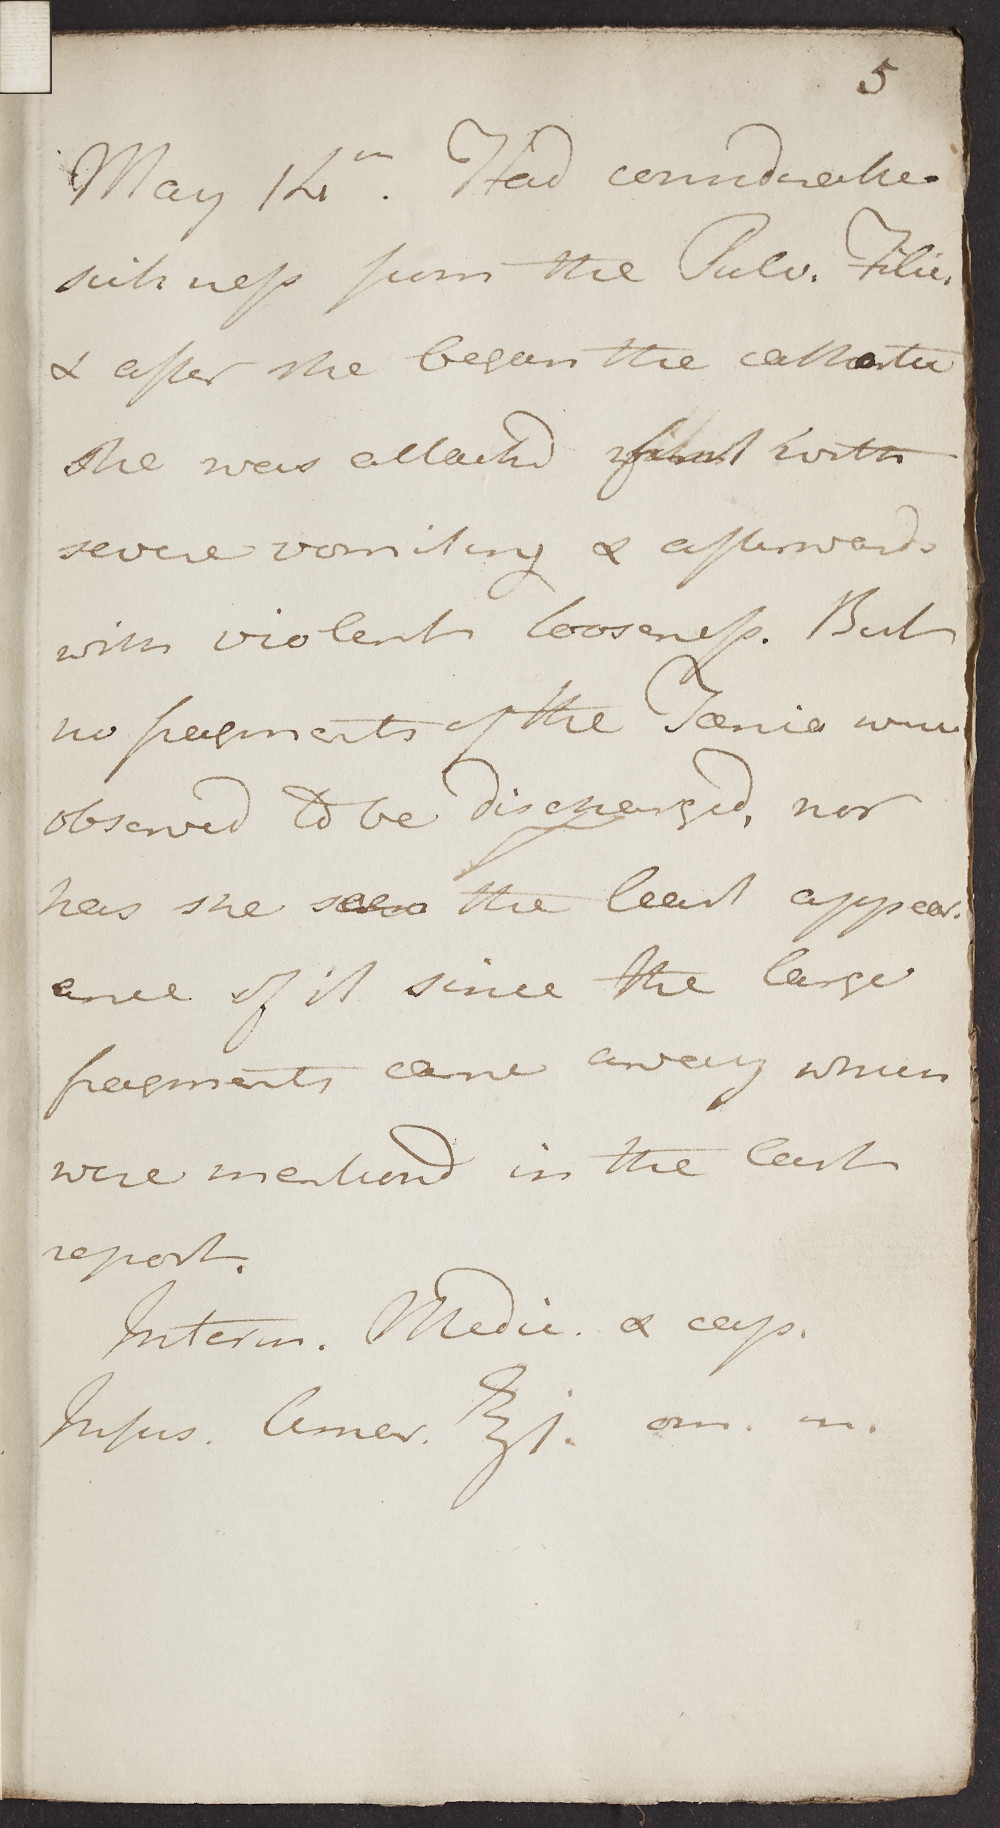 5
May 14th. Had considerable
sickness from the Pulv. Filic.
& after she began the cathartic
she was attackd first with
severe vomiting & afterwards
with violent looseness. But
no fragments of the Tænia were
observed to be discharged, nor
has she seen the least appear-
ance of it since the large
fragments came away which
were mentiond in the last
report.
Interm. Medic. & cap.
Infus. Amar. ℥j. om. m.